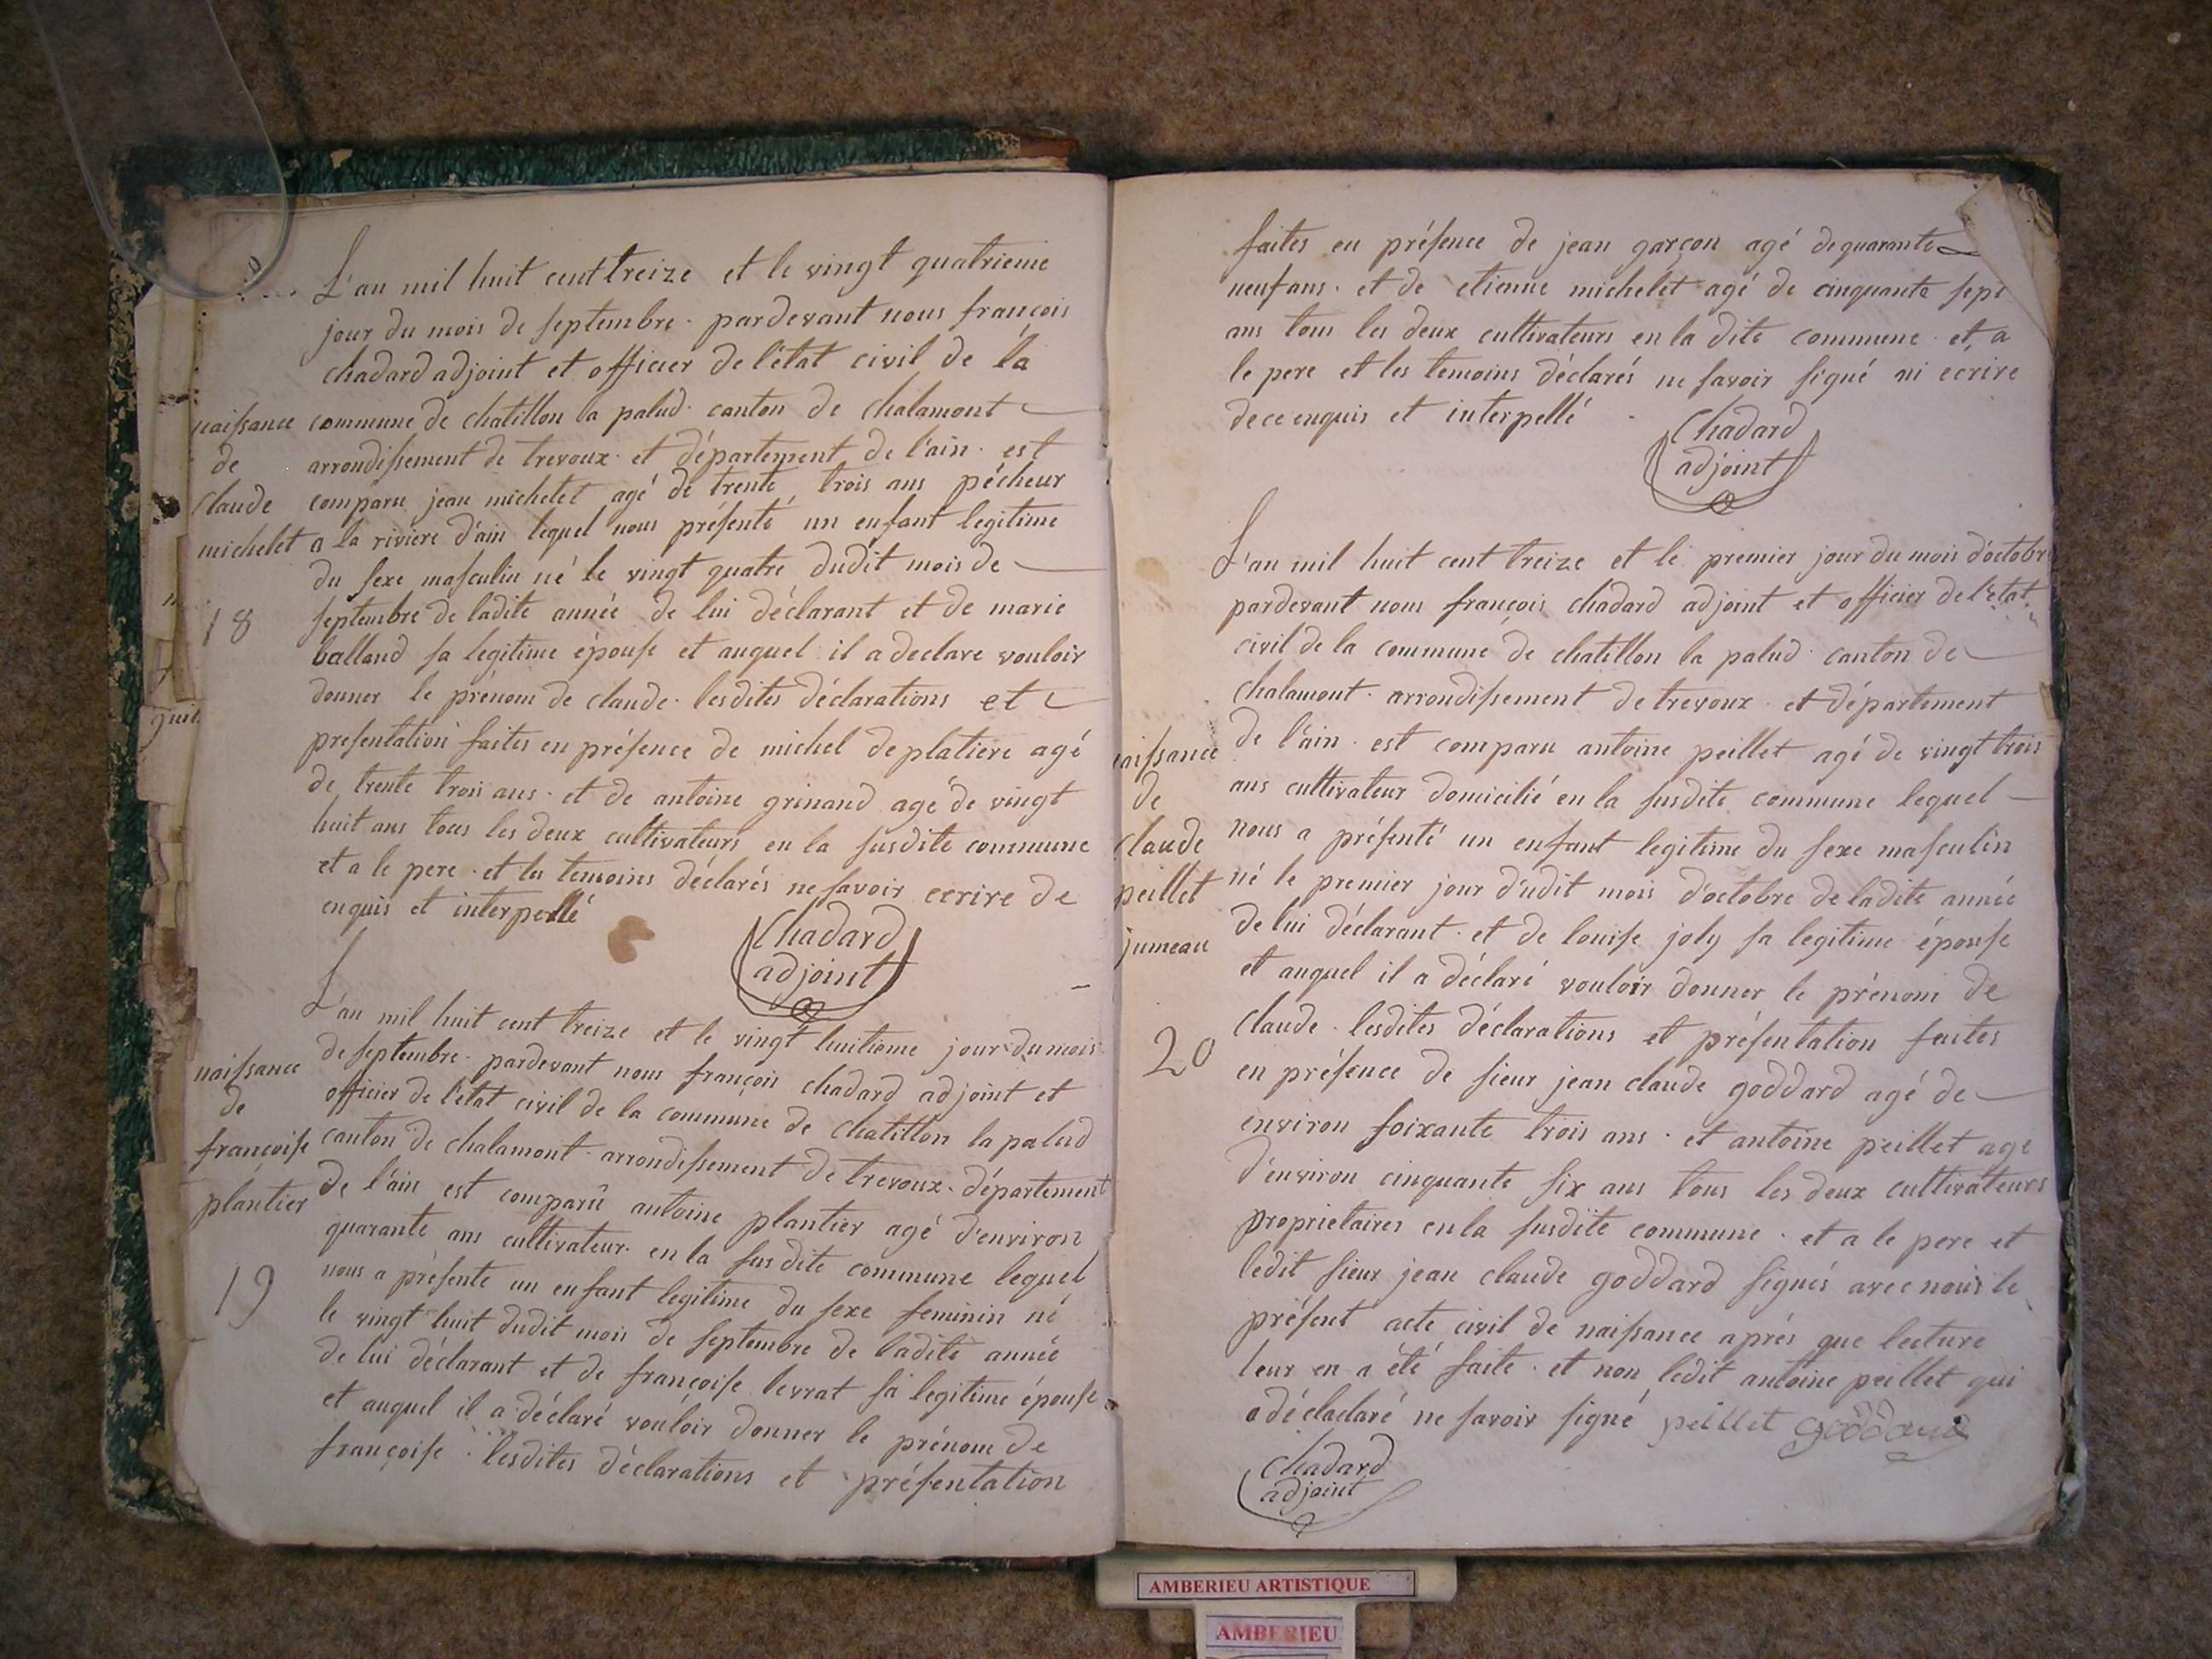 L'an mil huit cent treize et le vingt quatrieme
jour du mois de septembre. pardevant nous françois
chadard adjoint et officier de l'état civil de la
naissance
commune de chatillon la palud. canton de chalamont
de
arrondissement de trevoux. et département de l'ain. est
claude
comparu jean michelet agé de trente trois ans pécheur
michelet
a la riviere d'ain lequel nous présenté un enfant legitime
du sexe masculin né le vingt quatre dudit mois de
18
septembre de ladite année de lui déclarant et de marie
balland sa legitime épouse et auquel il a declare vouloir
donner le prénom de claude. lesdites déclarations et
presentation faites en présence de michel deplatiere agé
de trente trois ans. et de antoine grinand agé de vingt
huit ans tous les deux cultivateurs en la susdite commune
et a le pere. et les temoins déclarés ne savoir ecrire de
enquis et interpellé
Chadard
adjoint
L'an mil huit cent treize et le vingt huitieme jour du mois
naissance
de septembre. pardevant nous françois chadard adjoint et
de
officier de l'état civil de la commune de chatillon la palud
françoise
canton de chalamont. arrondissement de trevoux. département
plantier
de l'ain est comparû antoine plantier agé d'environ
quarante ans cultivateur. en la susdite commune lequel
19
nous a présente un enfant legitime du sexe feminin né
le vingt huit dudit mois de septembre de ladite année
de lui déclarant et de françoise levrat sa legitime épouse
et auquel il a déclaré vouloir donner le prénom de
françoise. lesdites déclarations et présentation
faites en présence de jean garçon agé de quarante
neuf ans. et de etienne michelet agé de cinquante sept
ans tous les deux cultivateurs en la dite commune. et a
le pere et les temoins déclarés ne savoir signé ni ecrire
de ce enquis et interpellé
Chadard
adjoint
L'an mil huit cent treize et le premier jour du mois d'octobre
pardevant nous françois chadard adjoint et officier de l'état
civil de la commune de chatillon la palud. canton de
chalamont. arrondissement de trevoux. et département
naissance
de l'ain. est comparu antoine peillet agé de vingt trois
de
ans cultivateur domicilié en la susdite commune lequel
claude
nous a présenté un enfant legitime du sexe masculin
peillet
né le premier jour dudit mois d'octobre de ladite année
jumeau
de lui déclarant. et de louise joly sa legitime épouse
et auquel il a déclaré vouloir donner le prénom de
20
claude. lesdites déclarations et présentation faites
en présence de sieur jean claude goddard agé de
environ soixante trois ans. et antoine peillet agé
d'environ cinquante six ans tous les deux cultivateurs
proprietaires en la susdite commune. et a le pere et
ledit sieur jean claude goddard signés avec nous le
présent acte civil de naissance aprés que lecture
leur en a été faite. et non ledit antoine peillet qui
a décladaré ne savoir signé peillet goddard
chadard
adjoint
AMBERIEU ARTISTIQUE
AMBERIEU